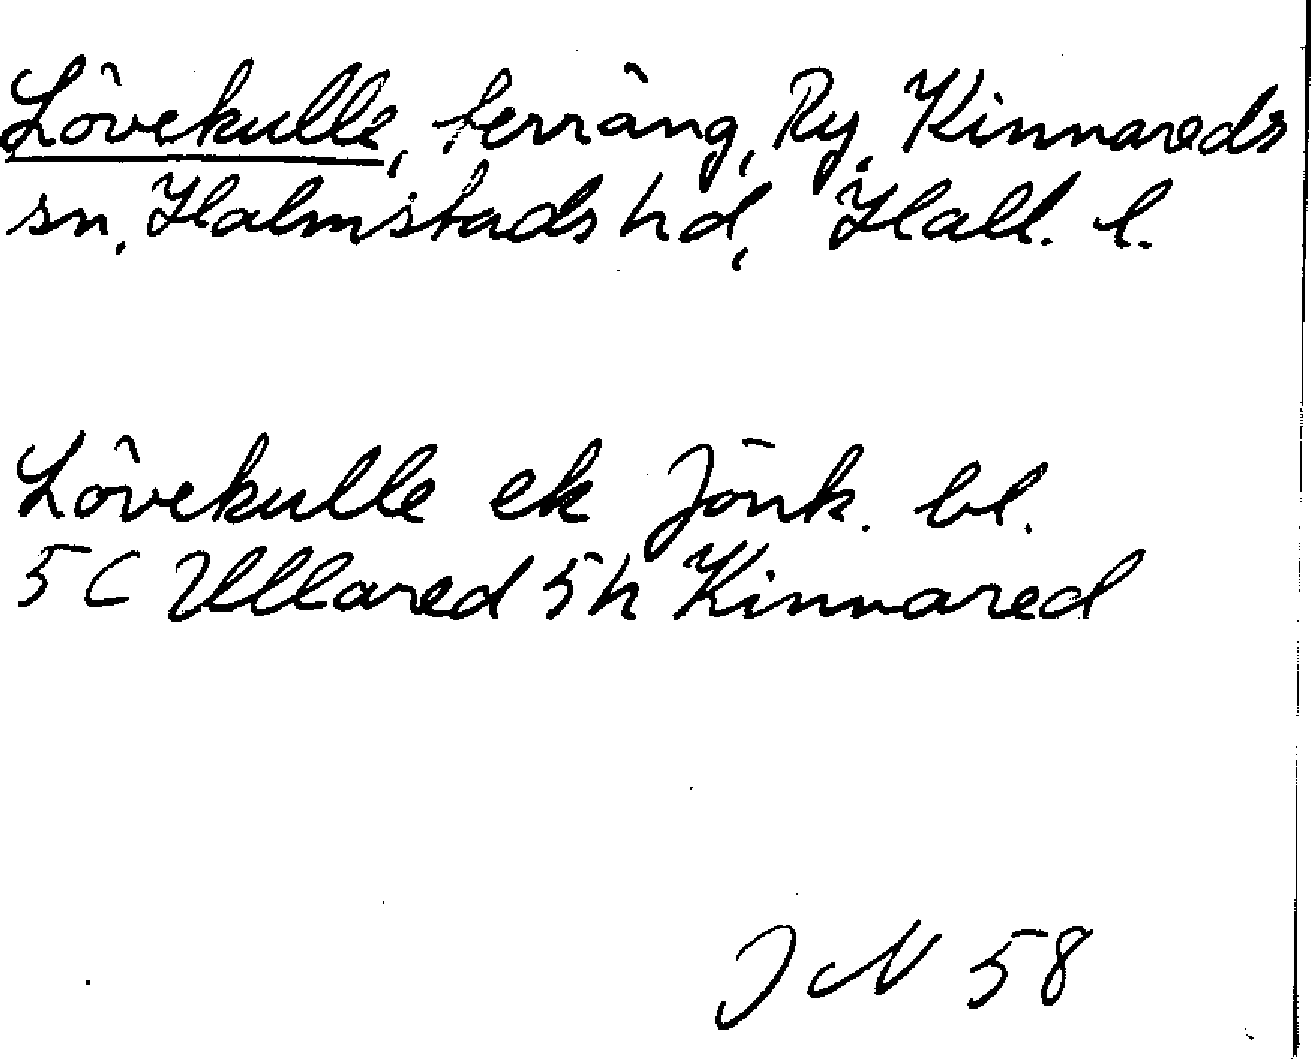 Lövekulle, terräng, Ry, Kinnareds
sn, Halmstads hd, Hall. l.
Lövekulle ek Jönk. bl.
5C Ullared 5h Kinnared
JN 58